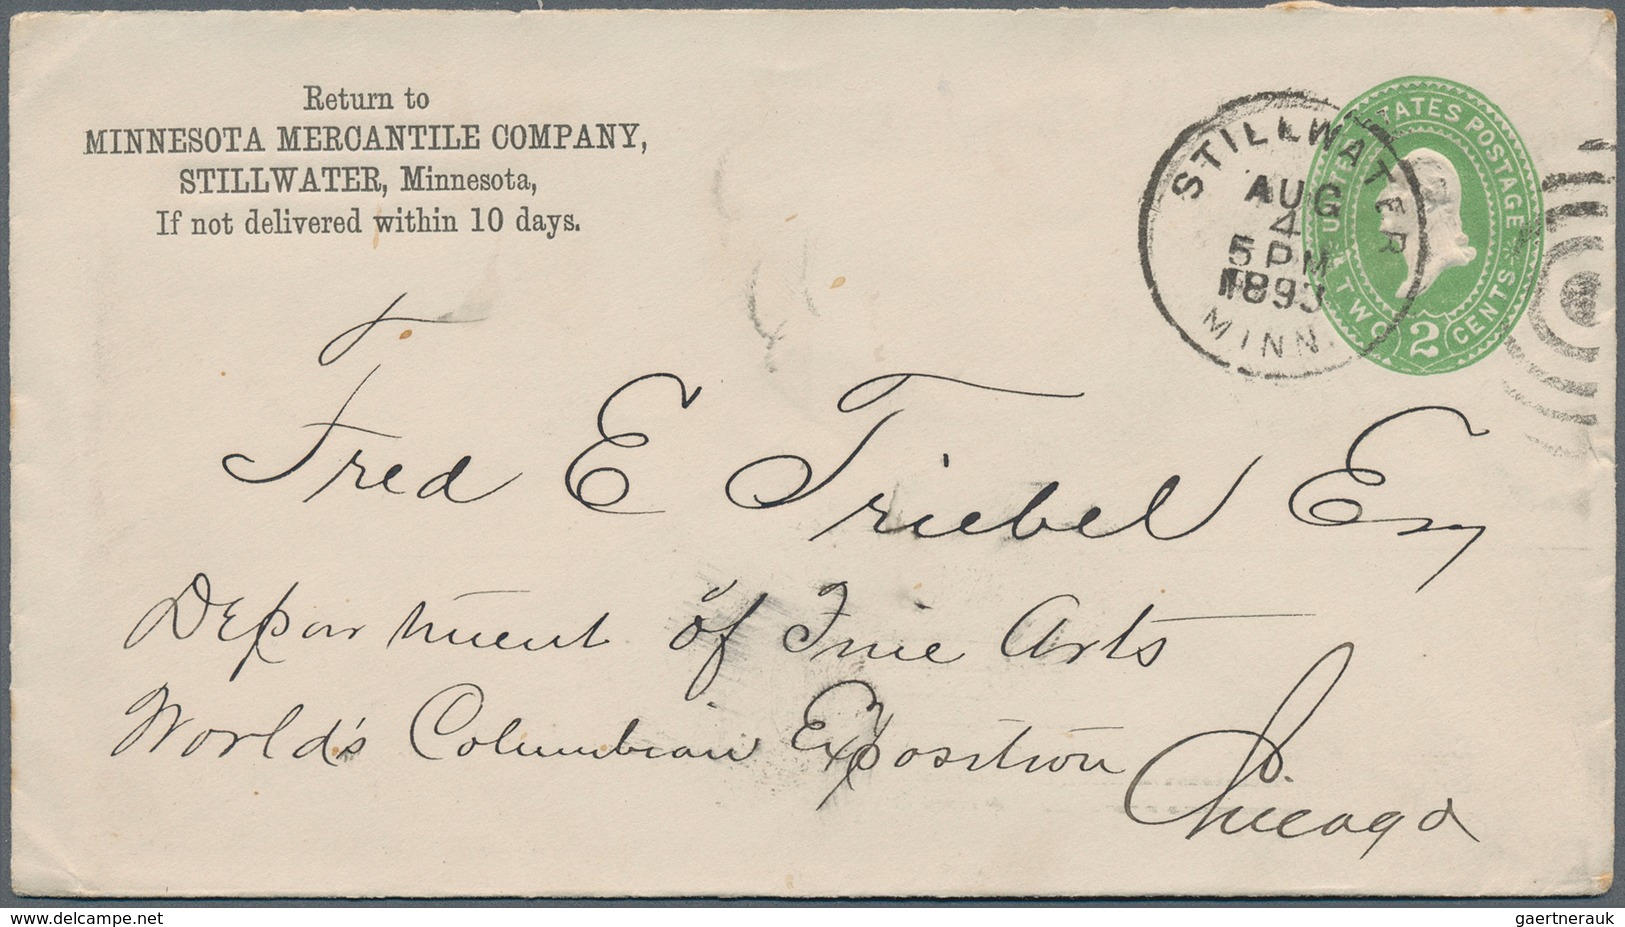 Return to
MINNESOTA MERCANTILE COMPANY,
STILLWATER, Minnesota,
If not delivered within 10 days.
STILLWATER
AUG
4
5 PM
1893
MINN.
UNITED STATES POSTAGE
TWO 2 CENTS
Fred E Triebel Esq
Department of Fine Arts
World's Columbian Exposition
Chicago
delcampe.net
gaertnerauk